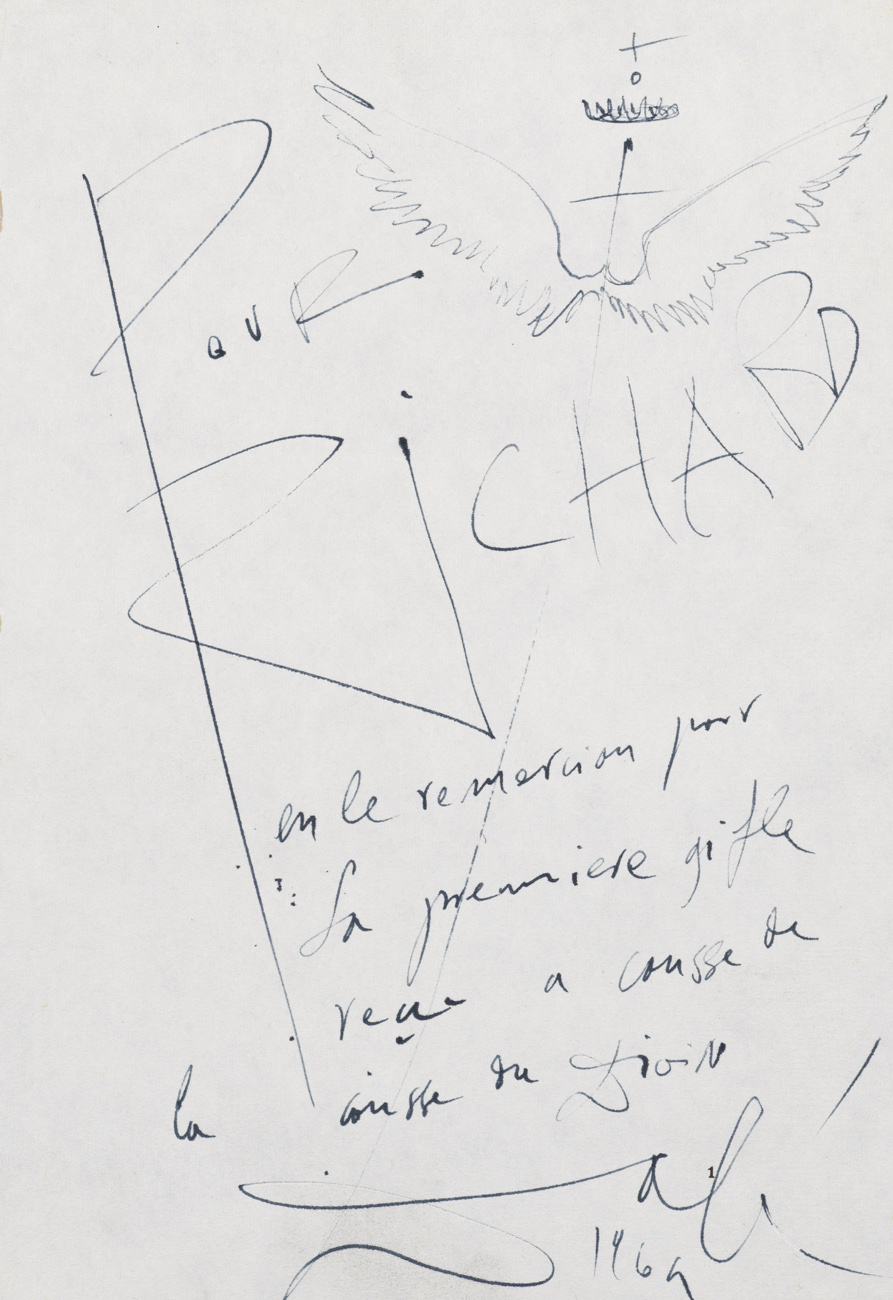 POUR
RiCHARD
en le remercion pour
la premiere gifle
reçu a cousse de
la cousse du DiviN
Dalí
1969
1